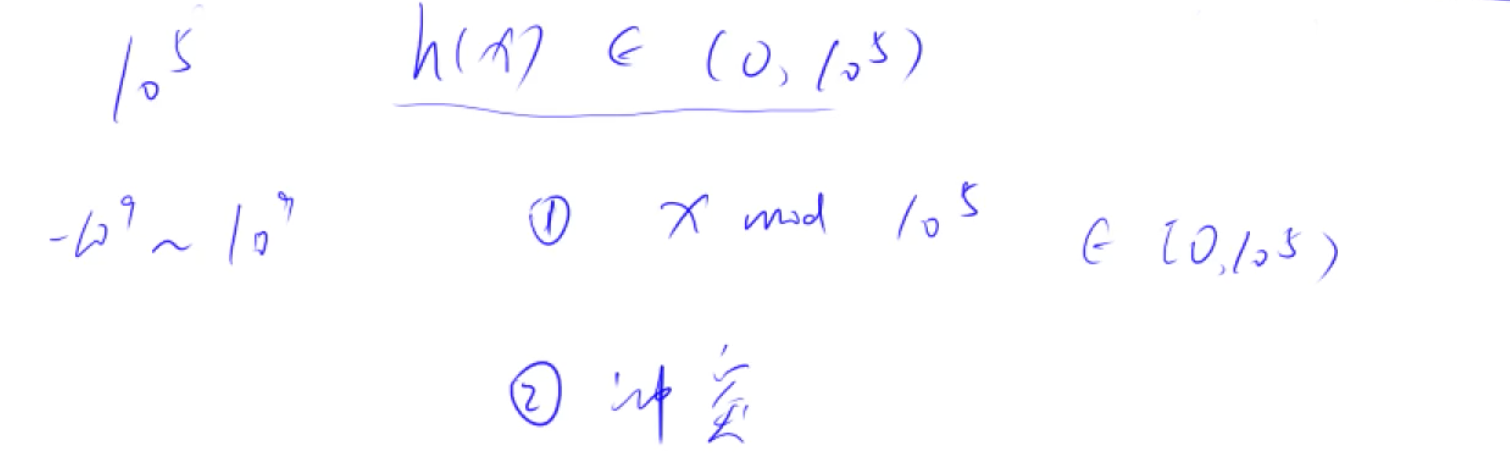 10⁵ h(x) ∈ (0, 10⁵)
-10⁹ ~ 10⁹ ① x mod 10⁵ ∈ [0, 10⁵)
② 冲突